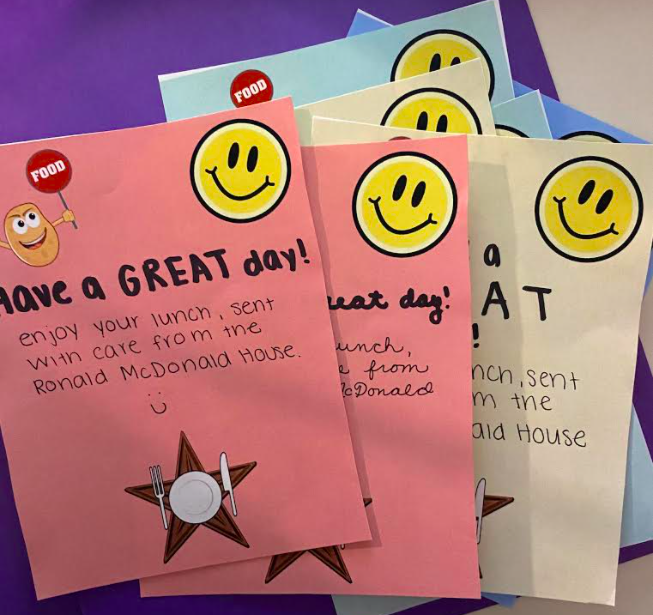 FOOD
FOOD
Have a GREAT day!
enjoy your lunch, sent
with care from the
Ronald McDonald House.
day!
from
McDonald
a
A T
!
sent
the
House